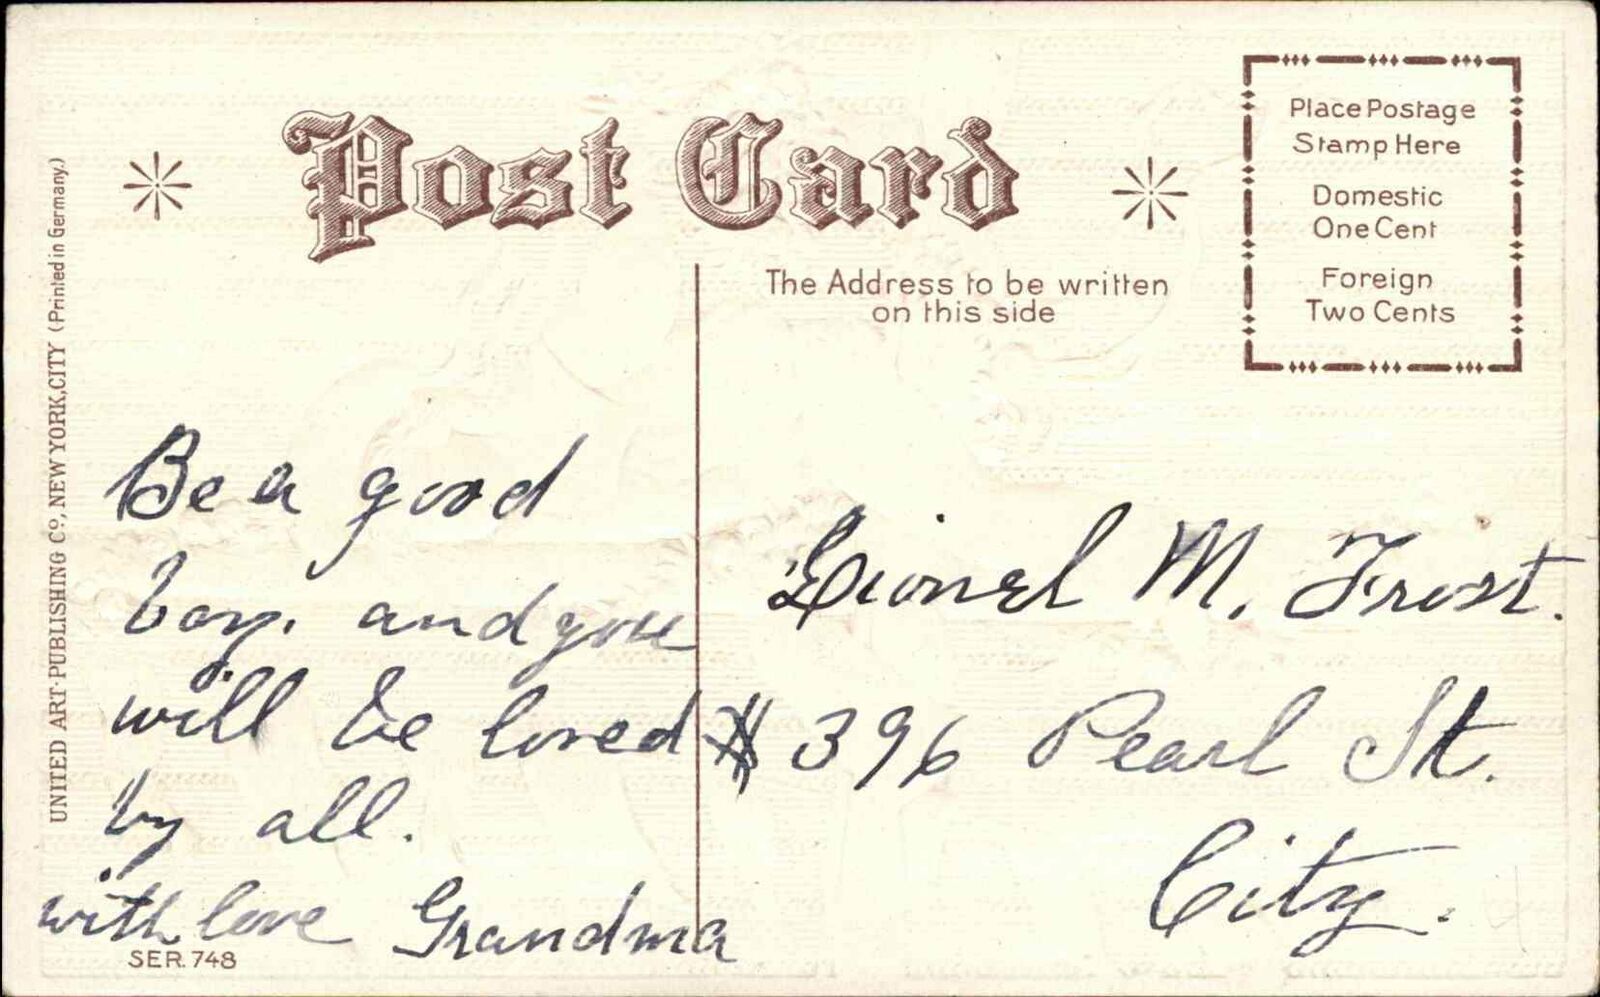 Post Card
Place Postage
Stamp Here
Domestic
One Cent
Foreign
Two Cents
The Address to be written
on this side
UNITED ART-PUBLISHING Co., NEW YORK, CITY (Printed in Germany.)
Be a good
boy. and you
will be loved
by all.
with love Grandma
Lionel M. Frost.
# 396 Pearl St.
City.
SER. 748